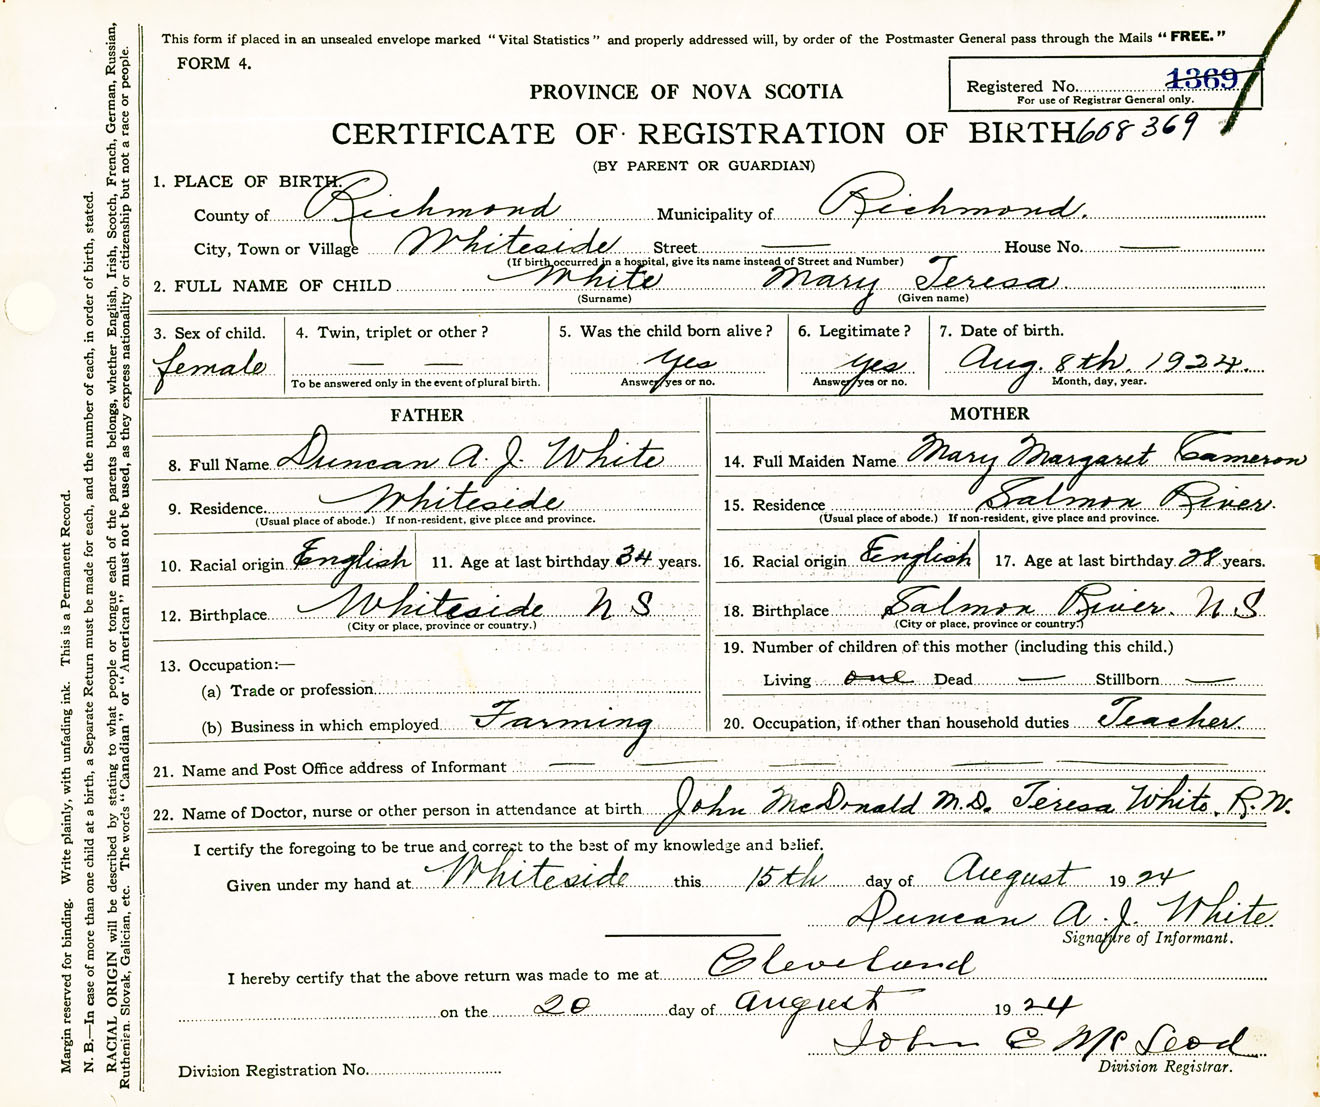 This form if placed in an unsealed envelope marked "Vital Statistics" and properly addressed will, by order of the Postmaster General pass through the Mails "FREE."
FORM 4.
Registered No. 1369
For use of Registrar General only.
PROVINCE OF NOVA SCOTIA
CERTIFICATE OF REGISTRATION OF BIRTH 608 369
(BY PARENT OR GUARDIAN)
1. PLACE OF BIRTH.
County of Richmond Municipality of Richmond.
City, Town or Village Whiteside Street — House No. —
(If birth occurred in a hospital, give its name instead of Street and Number)
2. FULL NAME OF CHILD White Mary Teresa.
(Surname) (Given name)
3. Sex of child. 4. Twin, triplet or other? 5. Was the child born alive? 6. Legitimate? 7. Date of birth.
female — — Yes Yes Aug. 8th. 1924.
To be answered only in the event of plural birth. Answer yes or no. Answer yes or no. Month, day, year.
FATHER
8. Full Name Duncan A. J. White
9. Residence. Whiteside
(Usual place of abode.) If non-resident, give place and province.
10. Racial origin English 11. Age at last birthday 34 years.
12. Birthplace Whiteside N S
(City or place, province or country.)
13. Occupation:—
(a) Trade or profession
(b) Business in which employed Farming
MOTHER
14. Full Maiden Name Mary Margaret Cameron
15. Residence Salmon River.
(Usual place of abode.) If non-resident, give place and province.
16. Racial origin English 17. Age at last birthday 28 years.
18. Birthplace Salmon River. N S
(City or place, province or country.)
19. Number of children of this mother (including this child.)
Living one Dead — Stillborn —
20. Occupation, if other than household duties Teacher.
21. Name and Post Office address of Informant — — — — —
22. Name of Doctor, nurse or other person in attendance at birth John McDonald M.D. Teresa White. R.N.
I certify the foregoing to be true and correct to the best of my knowledge and belief.
Given under my hand at Whiteside this 15th day of August 1924
Duncan A. J. White
Signature of Informant.
I hereby certify that the above return was made to me at Cleveland
on the 20 day of August 1924
John C McLeod
Division Registrar.
Division Registration No.
Margin reserved for binding. Write plainly, with unfading ink. This is a Permanent Record.
N. B.—In case of more than one child at a birth, a Separate Return must be made for each, and the number of each, in order of birth, stated.
RACIAL ORIGIN will be described by stating to what people or tongue each of the parents belongs, whether English, Irish, Scotch, French, German, Russian,
Ruthenian, Slovak, Galician, etc. The words "Canadian" or "American" must not be used, as they express nationality or citizenship but not a race or people.